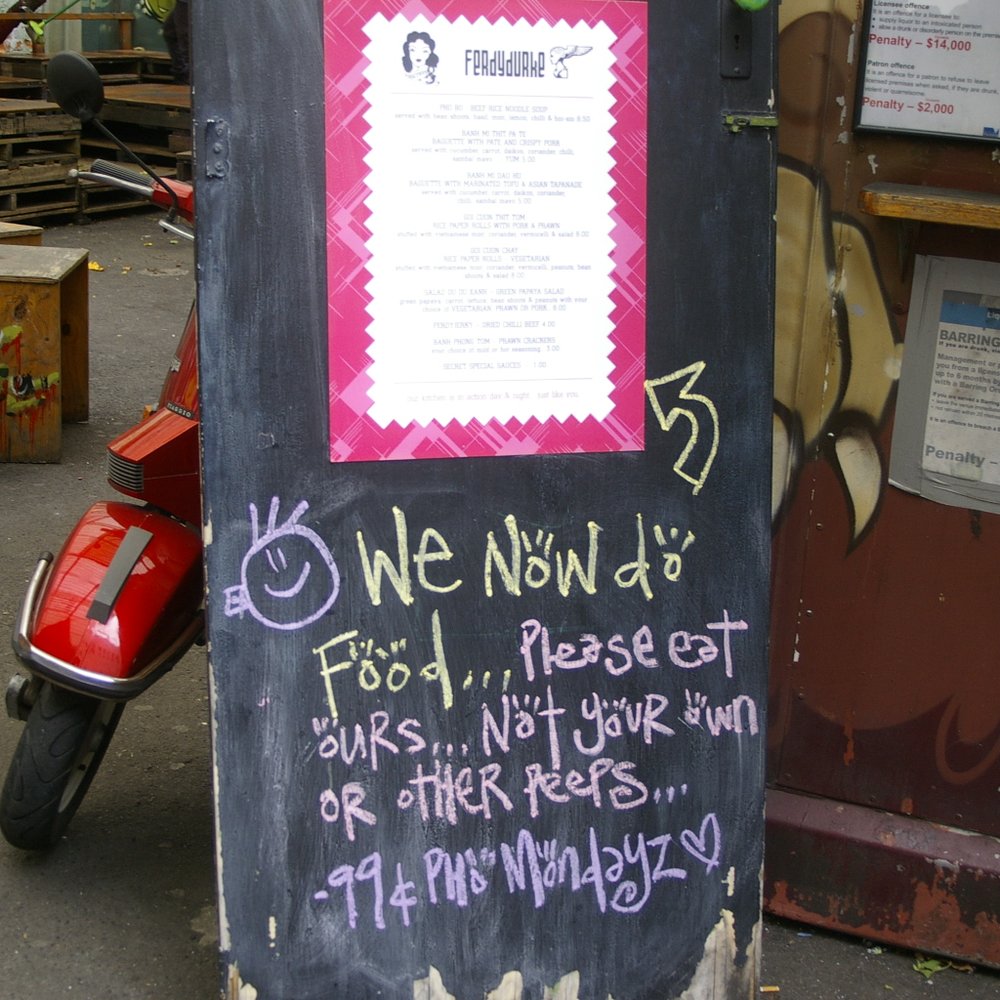 FERDYDURKE
PHO BO BEEF RICE NOODLE SOUP
served with bean shoots, basil, mint, lemon, chilli &
BANH MI THIT PA TE
BAGUETTE WITH PATE AND CRISPY PORK
served with cucumber, carrot, daikon, coriander, chilli,
YUM
BAGUETTE WITH MARINATED TOFU & ASIAN TAPANADE
served with cucumber, carrot, daikon, coriander,
GOI CUON THIT TOM
RICE PAPER ROLLS WITH PORK & PRAWN
stuffed with vietnamese mint, coriander, vermicelli, & salad
GOI CUON CHAY
RICE PAPER ROLLS VEGETARIAN
stuffed with vietnamese mint, coriander, vermicelli, peanuts, bean
shoots & salad
GREEN PAPAYA SALAD
green papaya, carrot, lettuce, bean shoots & peanuts with your
choice of VEGETARIAN PRAWN OR PORK
FERDYJERKY - DRIED CHILLI BEEF
BANH PHONG TOM PRAWN CRACKERS
SECRET SPECIAL SAUCES
our kitchen is in action day & night just like you
We Now do
Food... Please eat
ours... Not your own
or other peeps...
-99¢ Pho Mondayz
PIAGGIO
Licensee offence
It is an offence for a licensee to:
• supply liquor to an intoxicated person
• allow a drunk or disorderly person on the premises
Penalty – $14,000
Patron offence
It is an offence for a patron to refuse to leave
licensed premises when asked, if they are drunk,
violent or quarrelsome.
Penalty – $2,000
BARRING
If you are drunk,
Management or
you from a
up to 6 months
with a Barring
Penalty –